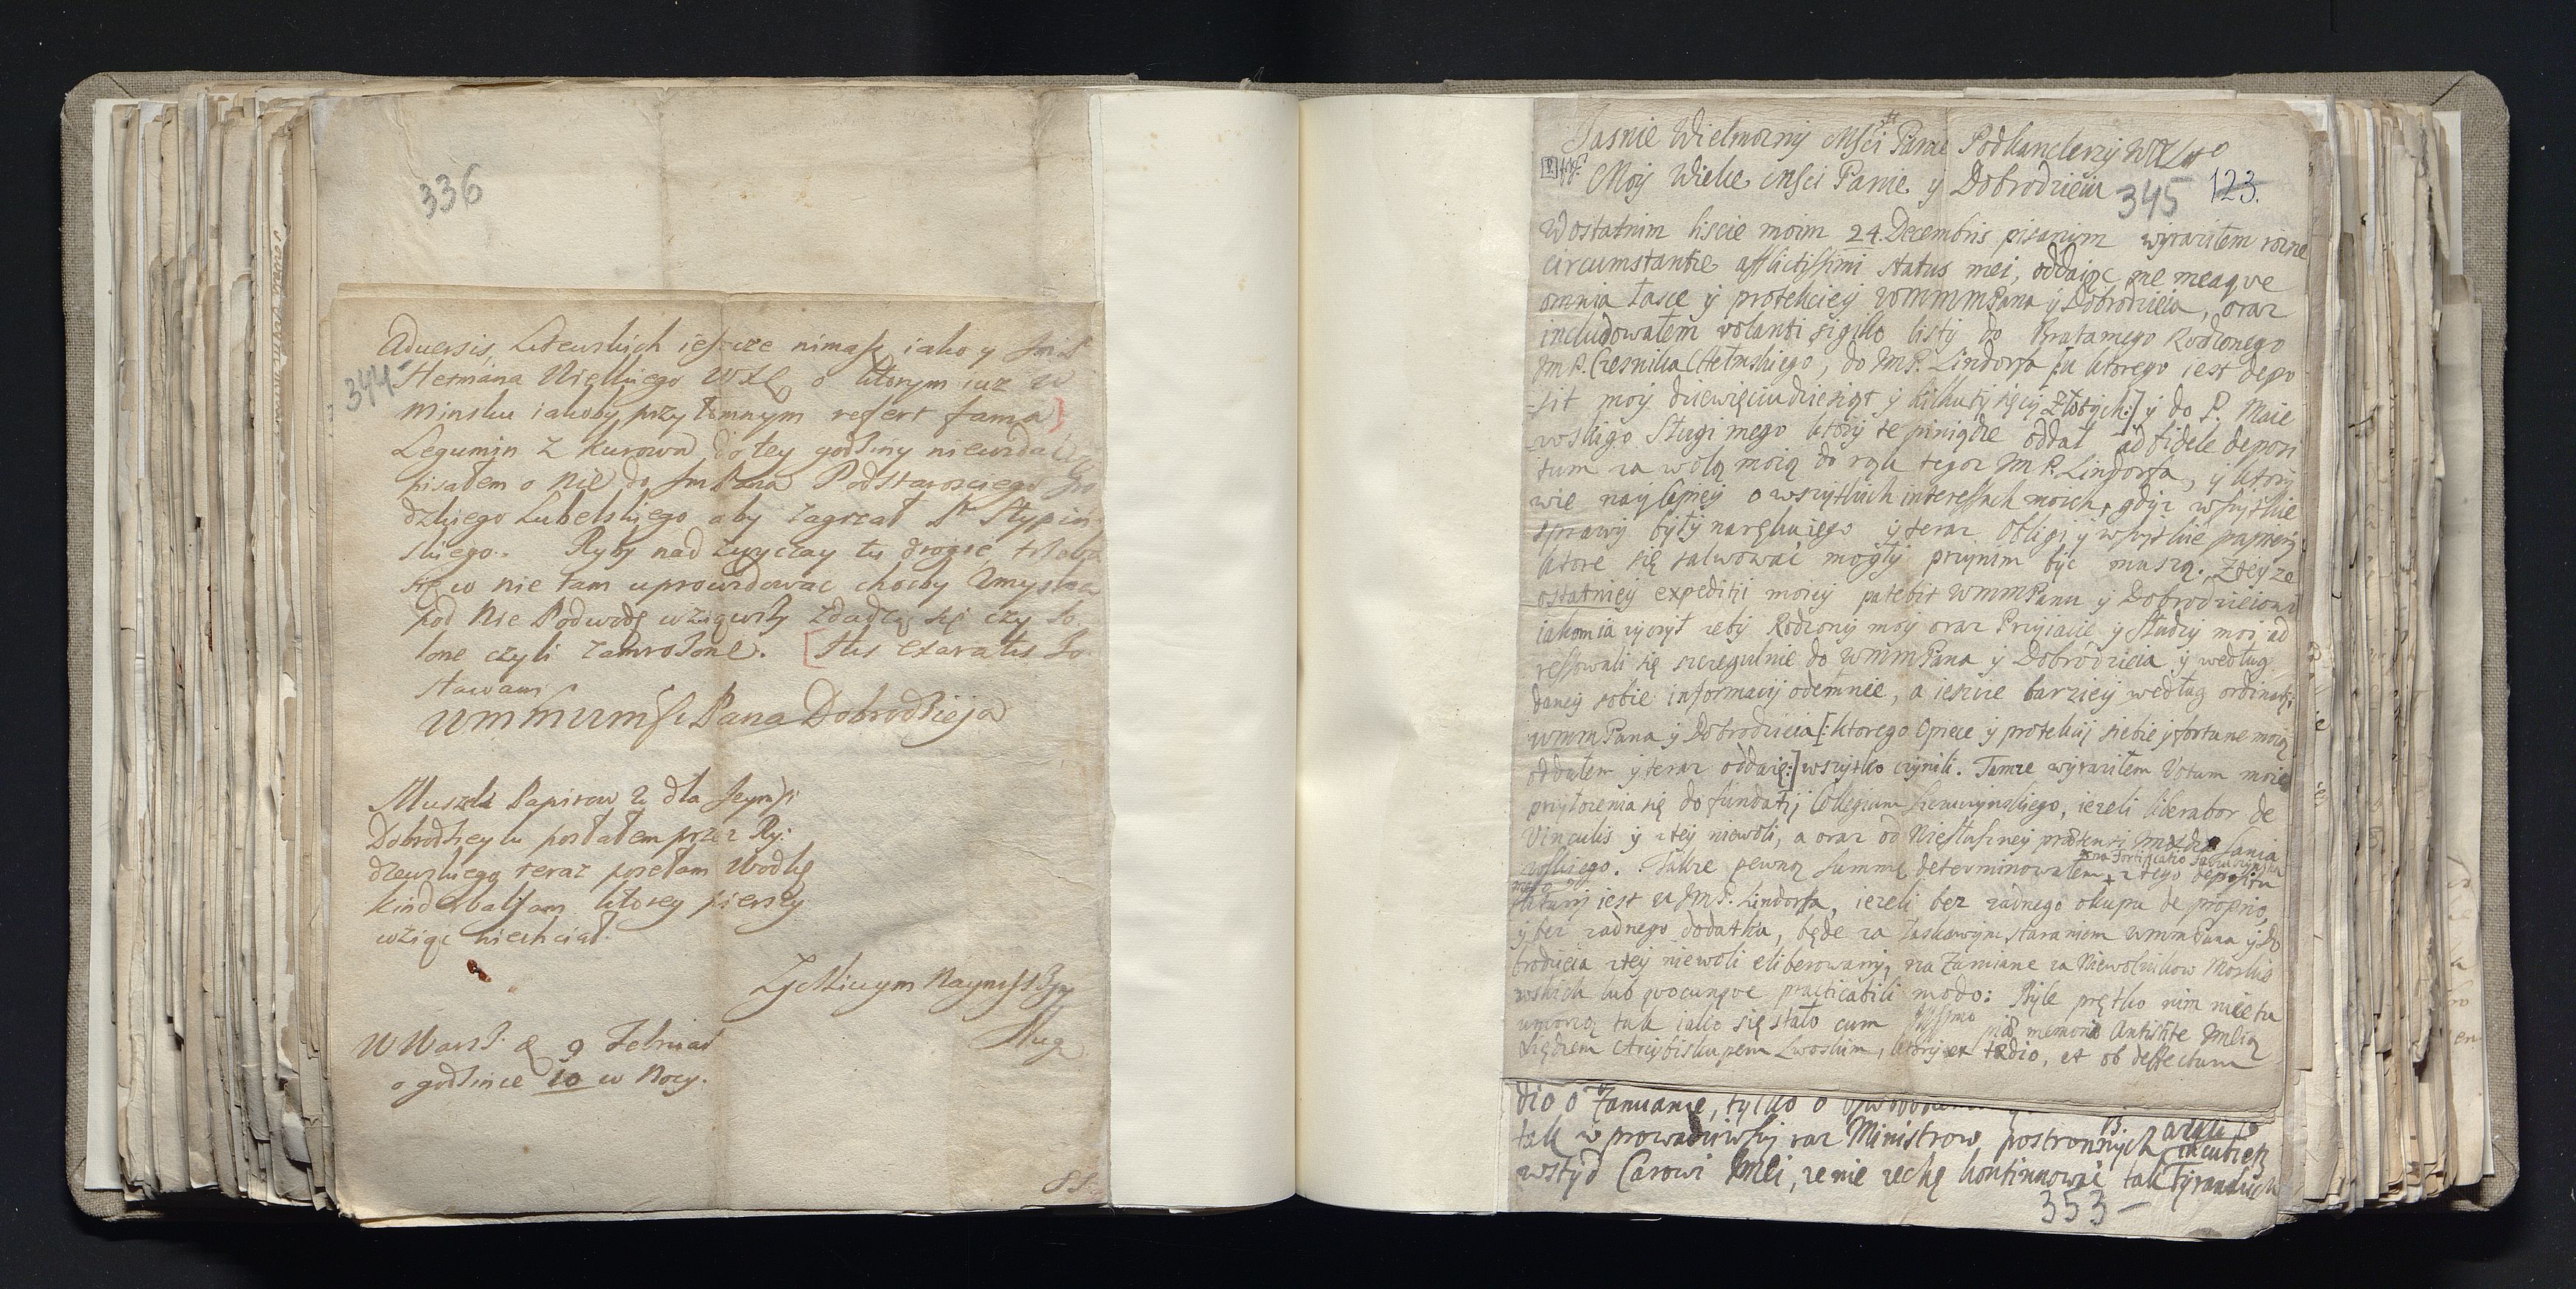 336
Aduersis, Litewskich ieszcze nimasz iako y
344
Hetmana Wielkiego WXL o ktorym iuz w
Minsku iakoby przytomnym refert fama
Legumin z Kurowa do tey godziny niewida
pisałem o nie do Jm Pana Podstarosciego
dzkiego Lubelskiego aby zagrzał P. Stypin
skiego. Ryby nad zwyczay tu drogie, trzeba
w nie tam uprowidowac chocby Umyslną
pod nie Podwodę wziąwszy zdadzą się czy so
lone czyli zamrożone. His exaratis Zo
stawam
WMMWMsci Pana Dobrodzieja
Muszla Papirow 2 dla Jeymsci
Dobrodzieyki posłałem przez Ry:
dzewskiego teraz poselam Wodkę
Kinderbalsam ktorey pierszy
wziąc niechciał.
Zyczliwym Nayniższym
Sług
W Warsz. d 9 Februar
o godzince 10 w Nocy.
Jasnie Wielmozny Msci Panie Podkanclerzy WXLitto
Moy Wielce Msci Panie y Dobrodzieiu
345 123.
W ostatnim liscie moim 24. Decembris pisanym wyraziłem rozne
circumstantie afflictissimi status mei, oddaiąc me meaque
omnia łasce y protekciey WMMMPana y Dobrodzieia, oraz
includowałem volanti sigillo listy do Brata mego Rodzonego
Jm P. Czesnika Chełmskiego, do Jm P. Lindorfa [:u ktorego iest depo
-sit moy dziewięcdziesiąt y kilku tysięcy Złotych:] y do P. Maie
wskigo Sługi mego ktory te piniądze oddał ad fidele deposi
tum za wolą moią do rąk tegoz Jm P. Lindorfa, y ktory
wie naylepiey o wszytkich interessach moich, gdyz wszytkie
sprawy były na ręku iego y teraz Obligi y wszystkie papiery
ktore się salwować mogły przynim być muszą. Z teyze
ostatniey expeditii moiey patebit WMMPanu y Dobrodzieiowi
iakom ia zyczył zeby Rodzony moy oraz Przyiaciele y Słudzy moi ad
ressowali się szczegulnie do WMMPana y Dobrodzieia y według
daney sobie informacyi odemnie, a ieszcze barziey według ordinatij
WMMPana y Dobrodzieia [:ktorego Opiece y protekcij siebie y fortune moią
oddałem y teraz oddaię:] wszytko czynili. Tamze wyraziłem Votum moie
przyłozenia się do fundatij Collegium, iezeli liberabor de
Vinculis y z tey niewoli, a oraz od Niesłuszney prætensi
wskiego. Także pewną summę determinowałem z tego depozitu
ktory iest u Jm P. Lindorfa, iezeli bez zadnego okupu de proprio,
y bez zadnego dodatku, będe za łaskawym staraniem WMMPana y Do
brodzieia z tey niewoli eliberowany, na Zamiane za Niewolnikow Moskie
wskich lub quocunque practicabili modo: Byle prętko nim mie tu
umorzą tak iako się stało cum piæ memoriæ Antistite Jmcią
Xiędzem Arcybiskupem Lwoskim, ktory ex tædio, et ob deffectum
dio o Zamianie, tylko o
tak w prowadziwszy raz Ministrow postronnych
wstyd Carowi Jmci, ze nie zechę kontinuować tak Tyrańskich
353-